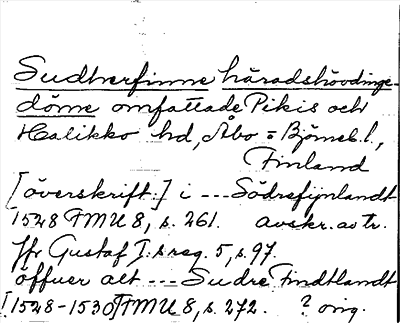 Sudherfinne häradshövdinge-
döme omfattade Pikis och
Halikko hd, Åbo = Björneb. l.,
Finland
[överskrift:] i --- Södrefynlandt
1528 FMU 8, s. 261. avskr. av tr.
Jfr Gustaf I:s reg. 5, s. 97.
öffuer alt --- Sudre Findtlandt
[1528-1530] FMU 8, s. 272. ? orig.